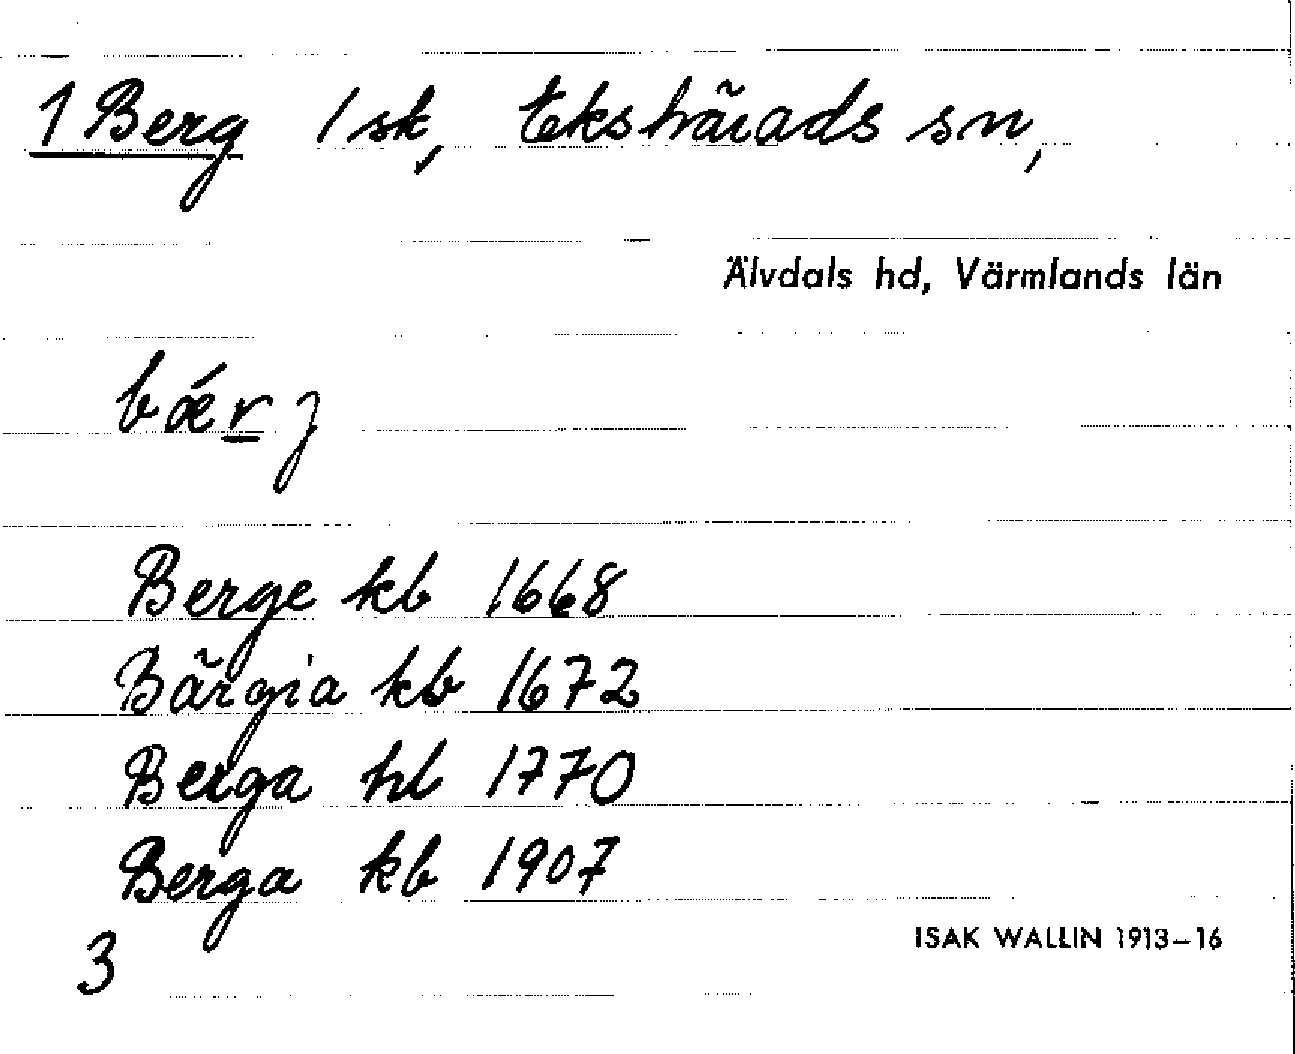 1 Berg 1 sk, Ekshärads sn,
Älvdals hd, Värmlands län
bǽrj
Berge kb 1668
Bärgia kb 1672
Berga hl 1770
Berga kb 1907
3
ISAK WALLIN 1913–16